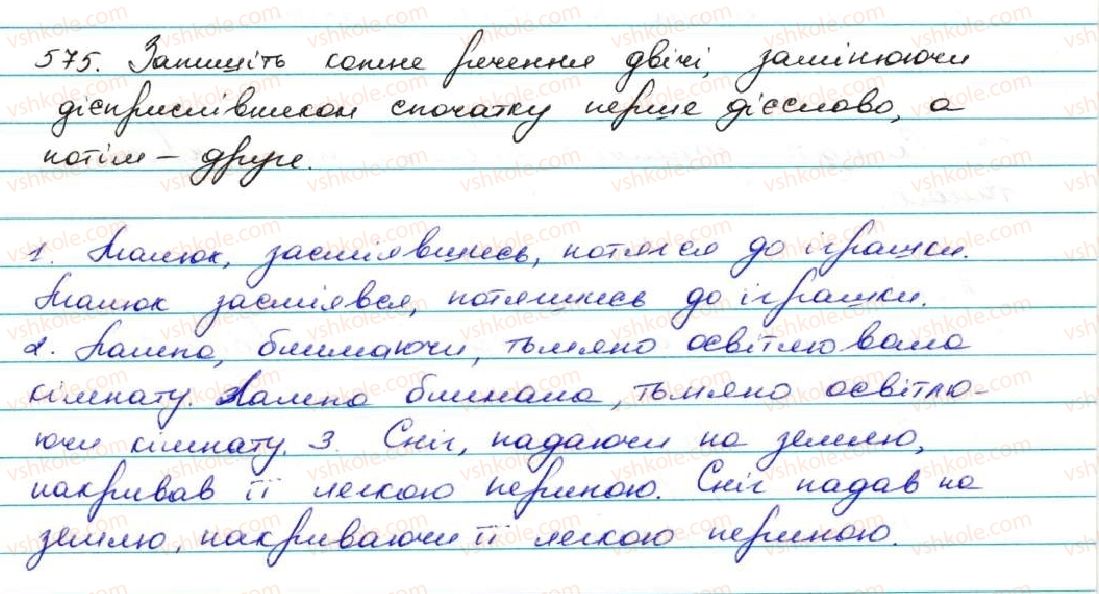 575. Запишіть кожне речення двічі, замінюючи
дієприслівником спочатку перше дієслово, а
потім – друге.
1. Малюк, засміявшись, потягся до іграшки.
Малюк засміявся, потягшись до іграшки.
2. Лампа, блимаючи, тьмяно освітлювала
кімнату. Лампа блимала, тьмяно освітлю-
ючи кімнату. 3. Сніг, падаючи на землю,
накривав її легкою периною. Сніг падав на
землю, накриваючи її легкою периною.
vshkole.com